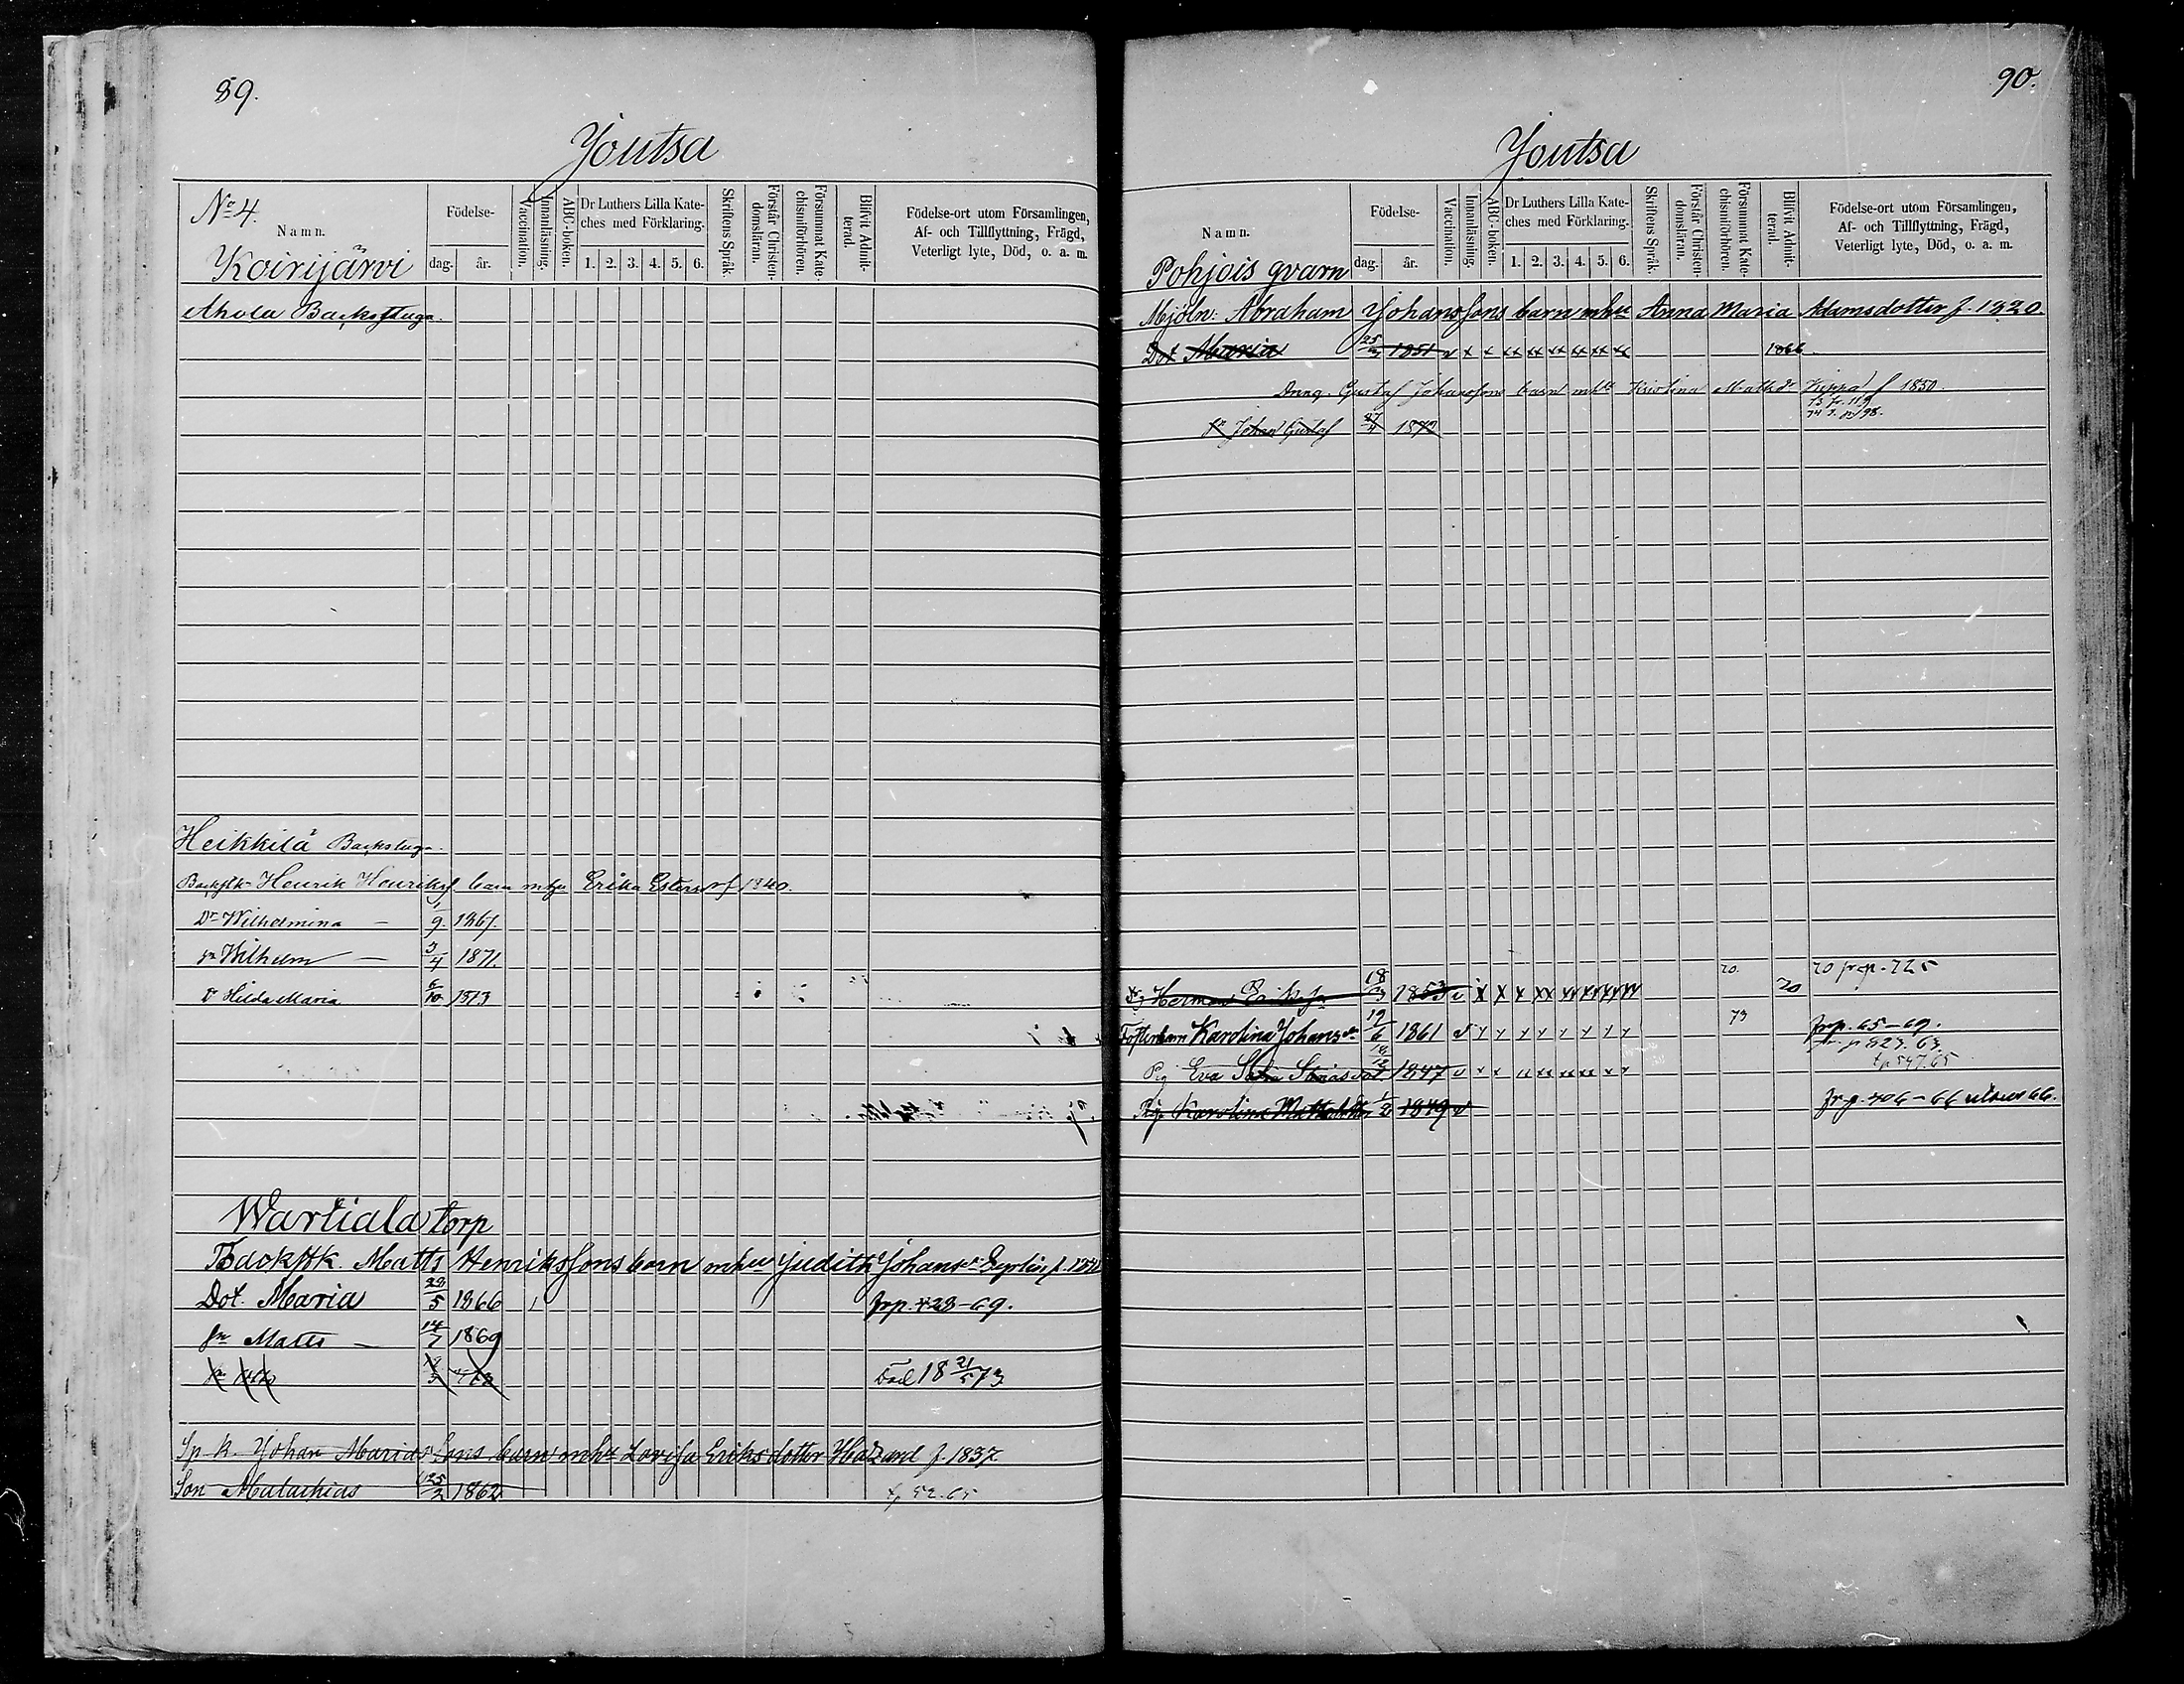 89.
Joutsa
No 4.
Namn.
Födelse-
dag. år.
Vaccination.
Innanläsning.
ABC-boken.
Dr Luthers Lilla Kate-
ches med Förklaring.
1. 2. 3. 4. 5. 6.
Skriftens Språk.
Förstår Christen-
domsläran.
Försummat Kate-
chismiförhören.
Blifvit Admit-
terad.
Födelse-ort utom Församlingen,
Af- och Tillflyttning, Frägd,
Veterligt lyte, Död, o. a. m.
Koirijärvi
Ahola Backstuga.
Heikkilä Backstuga.
Henrik Henriksf barn mhu Erika f 1840.
Dr Wilhelmina — 1/9. 1867.
sn Wilhelm — 3/4 1871.
Dr Hilda Maria 6/10 1873
Wartiala torp
Backstk. Matts Henrikssons barn mhu Judith Johansdr
Dot. Maria 29/5 1866 frp. 423-69.
sn Matts — 14/7 1869
död 18 21/5 73
Sp. k. Johan barn mhu Lovisa Eriksdotter f. 1837
Son Malachias 25/2 1862 tp 52.65
90.
Joutsa
Namn.
Födelse-
dag. år.
Vaccination.
Innanläsning.
ABC-boken.
Dr Luthers Lilla Kate-
ches med Förklaring.
1. 2. 3. 4. 5. 6.
Skriftens Språk.
Förstår Christen-
domsläran.
Försummat Kate-
chismiförhören.
Blifvit Admit-
terad.
Födelse-ort utom Församlingen,
Af- och Tillflyttning, Frägd,
Veterligt lyte, Död, o. a. m.
Pohjois qvarn
Mjöln: Abraham Johanssons barn mhu Anna Maria Adamsdotter f. 1820.
Dot Maria 25/3 1851 v x x xx xx xx xx xx xx 1866.
Dräng. Gustaf Johanssons barn mhu Kristina Mattsdr f 1850.
73 fr. 119
74 t. p. 198.
sn Johan Gustaf 27/4 1872
20. 20 fr p. 725
Herman Eriksson 18/3 1853 v X X x xx xx xx xx xx 20
Fosterbarn Karolina Johansdr 19/6 1861 v 73 frp. 65-69.
fr. p 823. 63.
Pig Eva 18/12 1847 v tp 547.65
Pig. Karolina Mattsdotter 1/2 1849 v fr p. 406-66